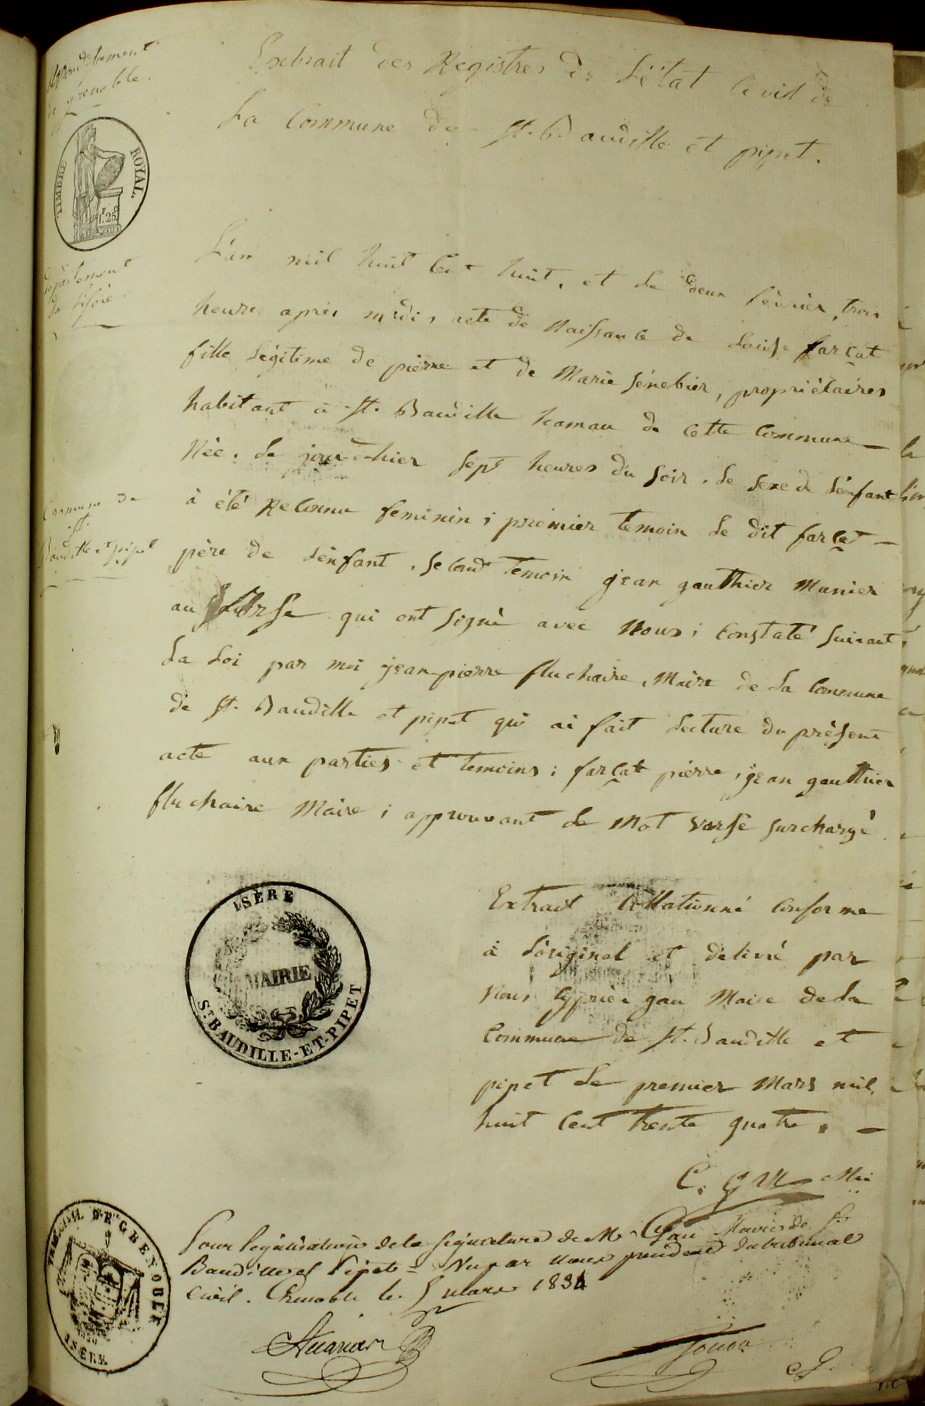 Arrondissement
de Grenoble.
TIMBRE ROYAL.
Extrait des Registres de L'état Civil de
La Commune de St. Baudille et pipet.
Département
de l'isère
L'an mil huit Cent huit, et le deux février, trois
heures après midi, acte de Naissance de Louise farçat
fille Légitime de pierre et de Marie sénebier, propriétaires
habitant à St. Baudille hamau de Cette Commune
Née. le jour d'hier sept heures du soir. le sexe de L'énfant
à été Reconnu feminin ; premier temoin Le dit farçat
Commune de
St.
Baudille et pipet
père de L'énfant. second temoin jean gauthier Munier
au qui ont signé avec Nous ; Constaté suivant
La Loi par moi jean pierre fluchaire, Maire de La Commune
de St. Baudille et pipet qui ai fait Lecture du présent
acte aux parties et temoins ; farçat pierre, jean gauthier
fluchaire Maire ; approuvant le Mot surchargé.
ISÈRE
MAIRIE
ST. BAUDILLE-ET-PIPET
Extrait Collationné Conforme
à L'original et délivré par
Nous gau Maire de La
Commune de St. Baudille et
pipet Le premier Mars mil
huit Cent trente quatre.
C. gau
TRIBUNAL DE GRENOBLE
ISÈRE
Pour légalisation de la signature de Mr. Gau Maire de St.
Baudille et Pipet = Vu par nous président du tribunal
Civil. Grenoble le 5 mars 1834